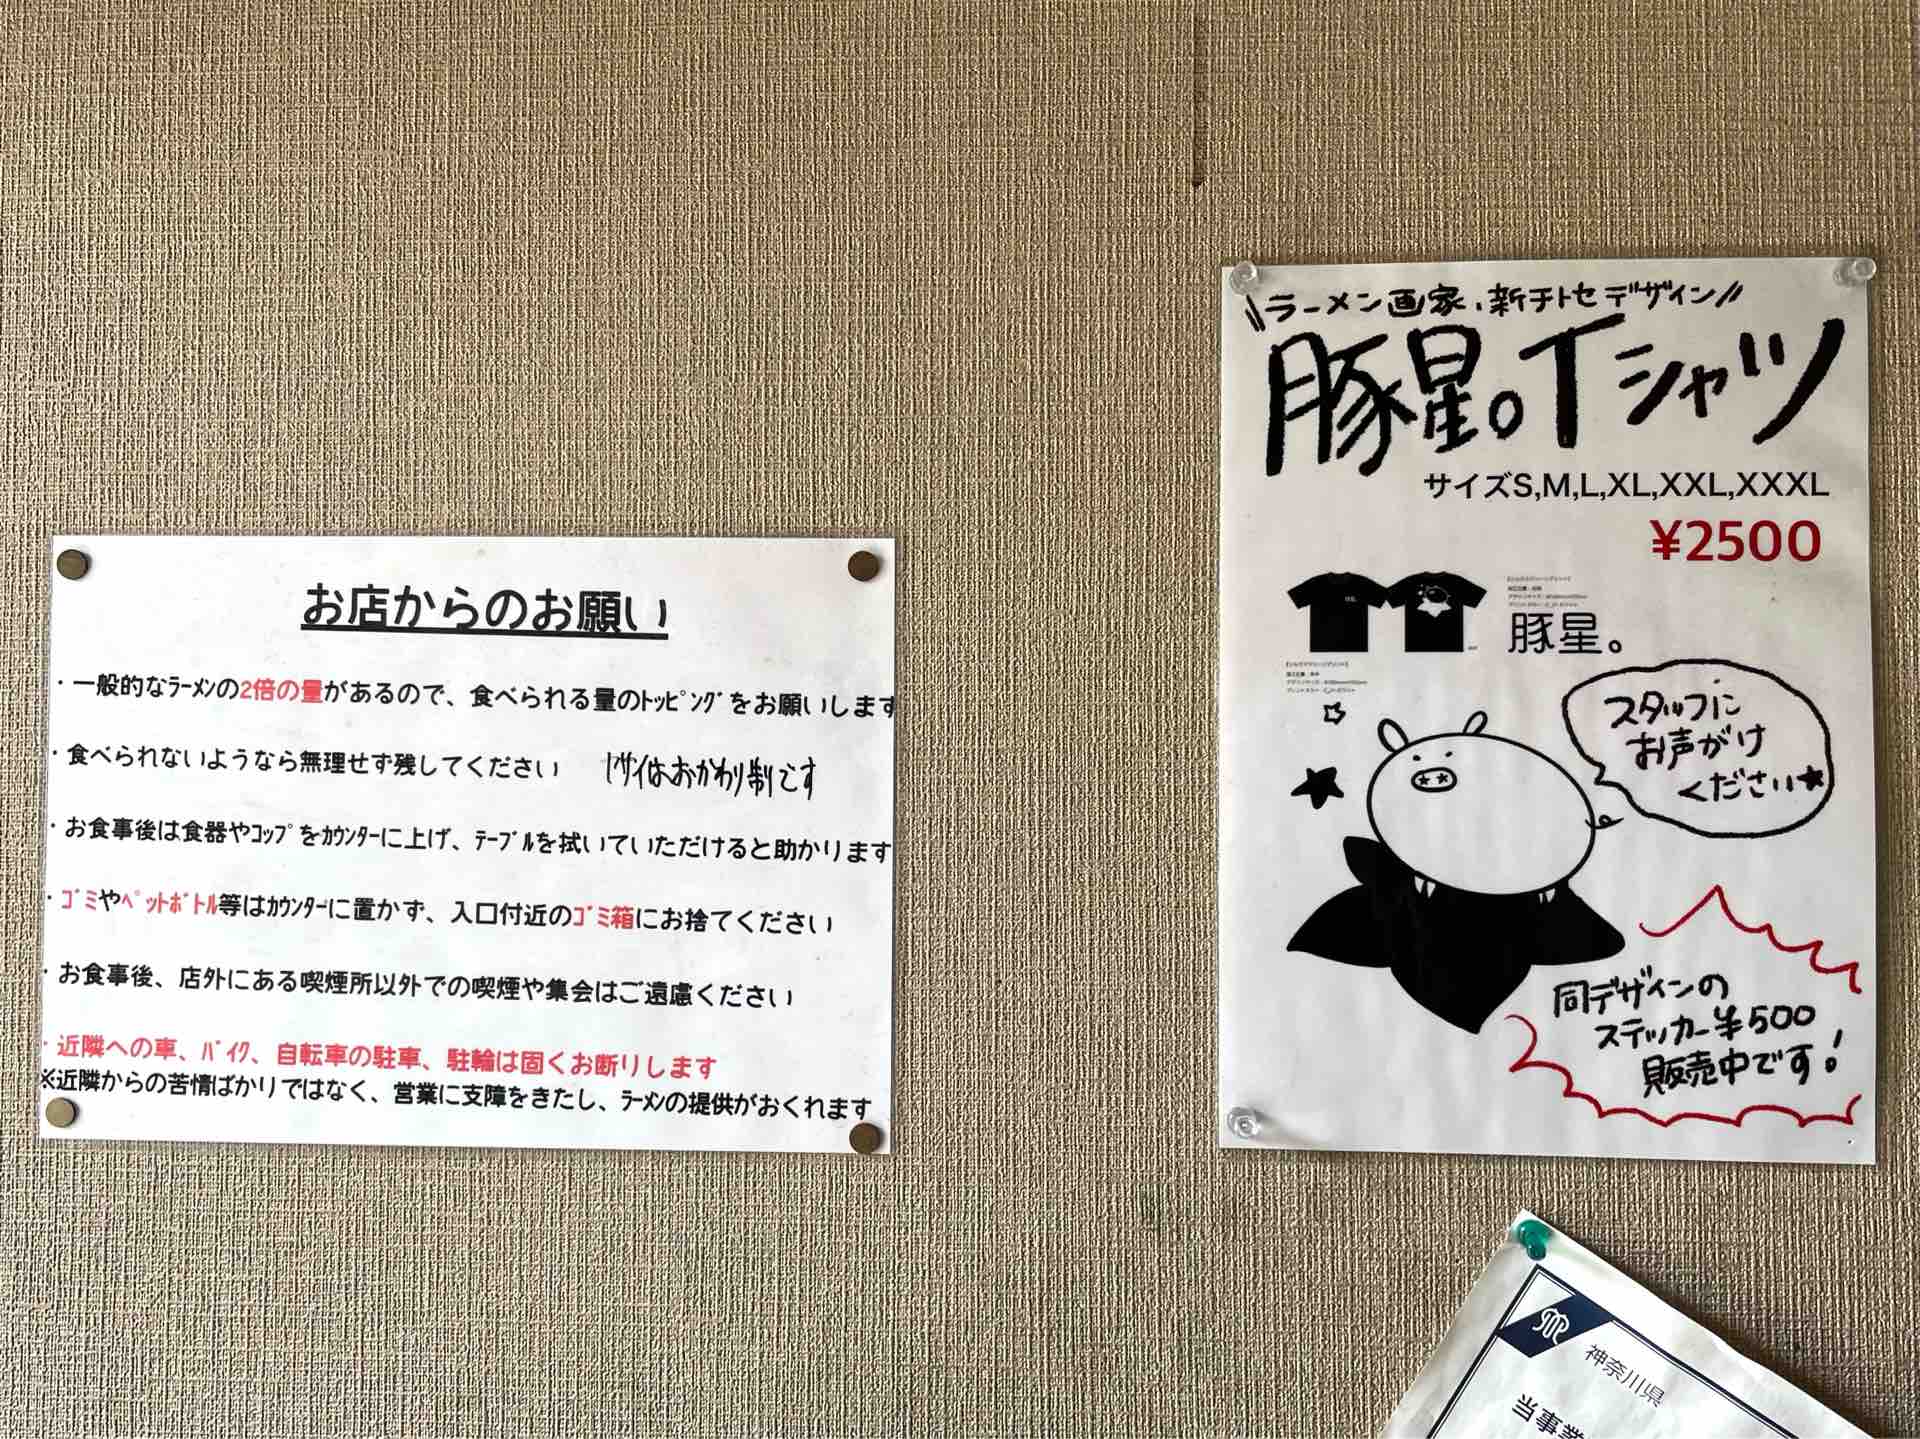 お店からのお願い
・一般的なラーメンの2倍の量があるので、食べられる量のトッピングをお願いします
・食べられないようなら無理せず残してください ヤサイはおかわり制です
・お食事後は食器やコップをカウンターに上げ、テーブルを拭いていただけると助かります
・ゴミやペットボトル等はカウンターに置かず、入口付近のゴミ箱にお捨てください
・お食事後、店外にある喫煙所以外での喫煙や集会はご遠慮ください
・近隣への車、バイク、自転車の駐車、駐輪は固くお断りします
※近隣からの苦情ばかりではなく、営業に支障をきたし、ラーメンの提供がおくれます
\\ラーメン画家、新チトセデザイン//
豚星。Tシャツ
サイズS,M,L,XL,XXL,XXXL
¥2500
豚星。
スタッフに
お声がけ
ください★
同デザインの
ステッカー¥500
販売中です!
神奈川県
当事業